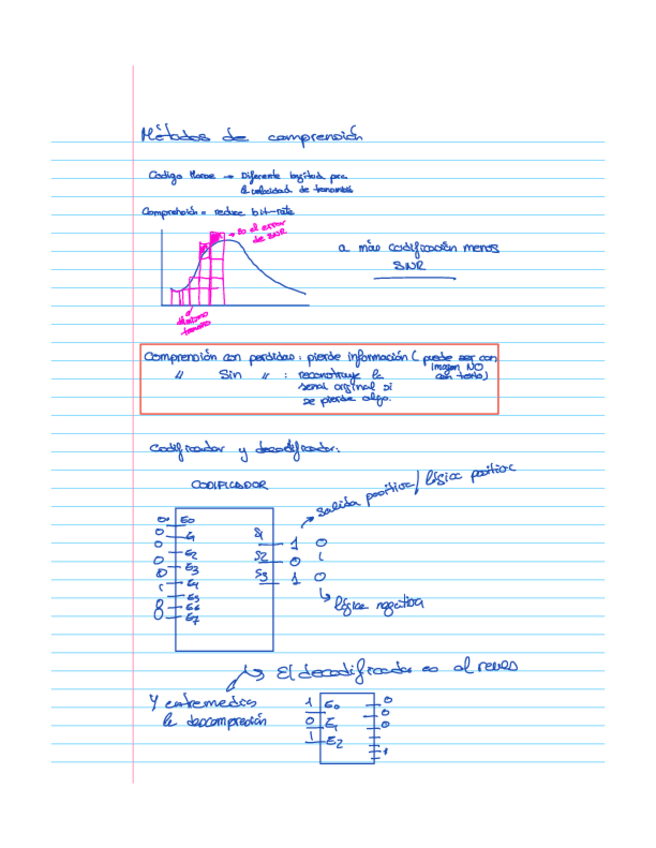 Métodos de comprensión
Codigo Morse → Diferente longitud para
la velocidad de transmisión
Comprensión = reduce bit-rate
→ Es el error
de SNR
a más codificación menos
SNR
Mismo
tamaño
Comprensión con perdidas: pierde información (puede ser con
imagen NO
con texto)
" Sin " : reconstruye la
señal original si
se pierde algo.
Codificador y decodificador:
CODIFICADOR
salida positiva / lógica positiva
0 E0
0 E1 S1 1 0
0 E2 S2 0 1
0 E3 S3 1 0
E4
E5
E6
E7
↳ lógica negativa
↳ El decodificador es al reves
Y entremedias
la descompresión
1 E0 0
0 E1 0
1 E2 0
1